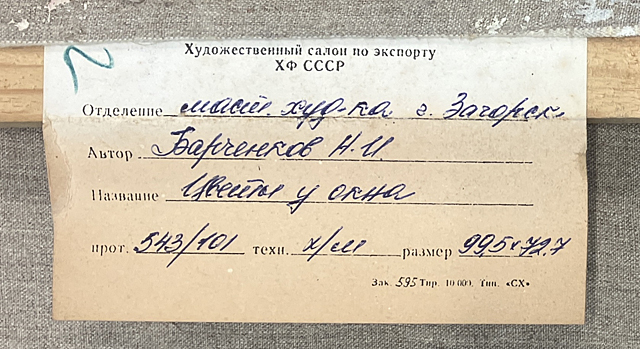 Художественный салон по экспорту
ХФ СССР
Отделение маст. худ-ка г. Загорск
Автор Барченков Н.И.
Название Цветы у окна
прот. 543/101 техн. х/м размер 99,5х72.7
Зак. 595 Тир. 10 000. Тип. «СХ»